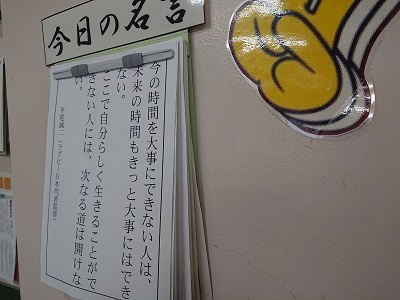 今日の名言
今の時間を大事にできない人は、
未来の時間もきっと大事にはでき
ない。
ここで自分らしく生きることがで
きない人には、次なる道は開けな
い。
平尾誠二（ラグビー日本代表監督）